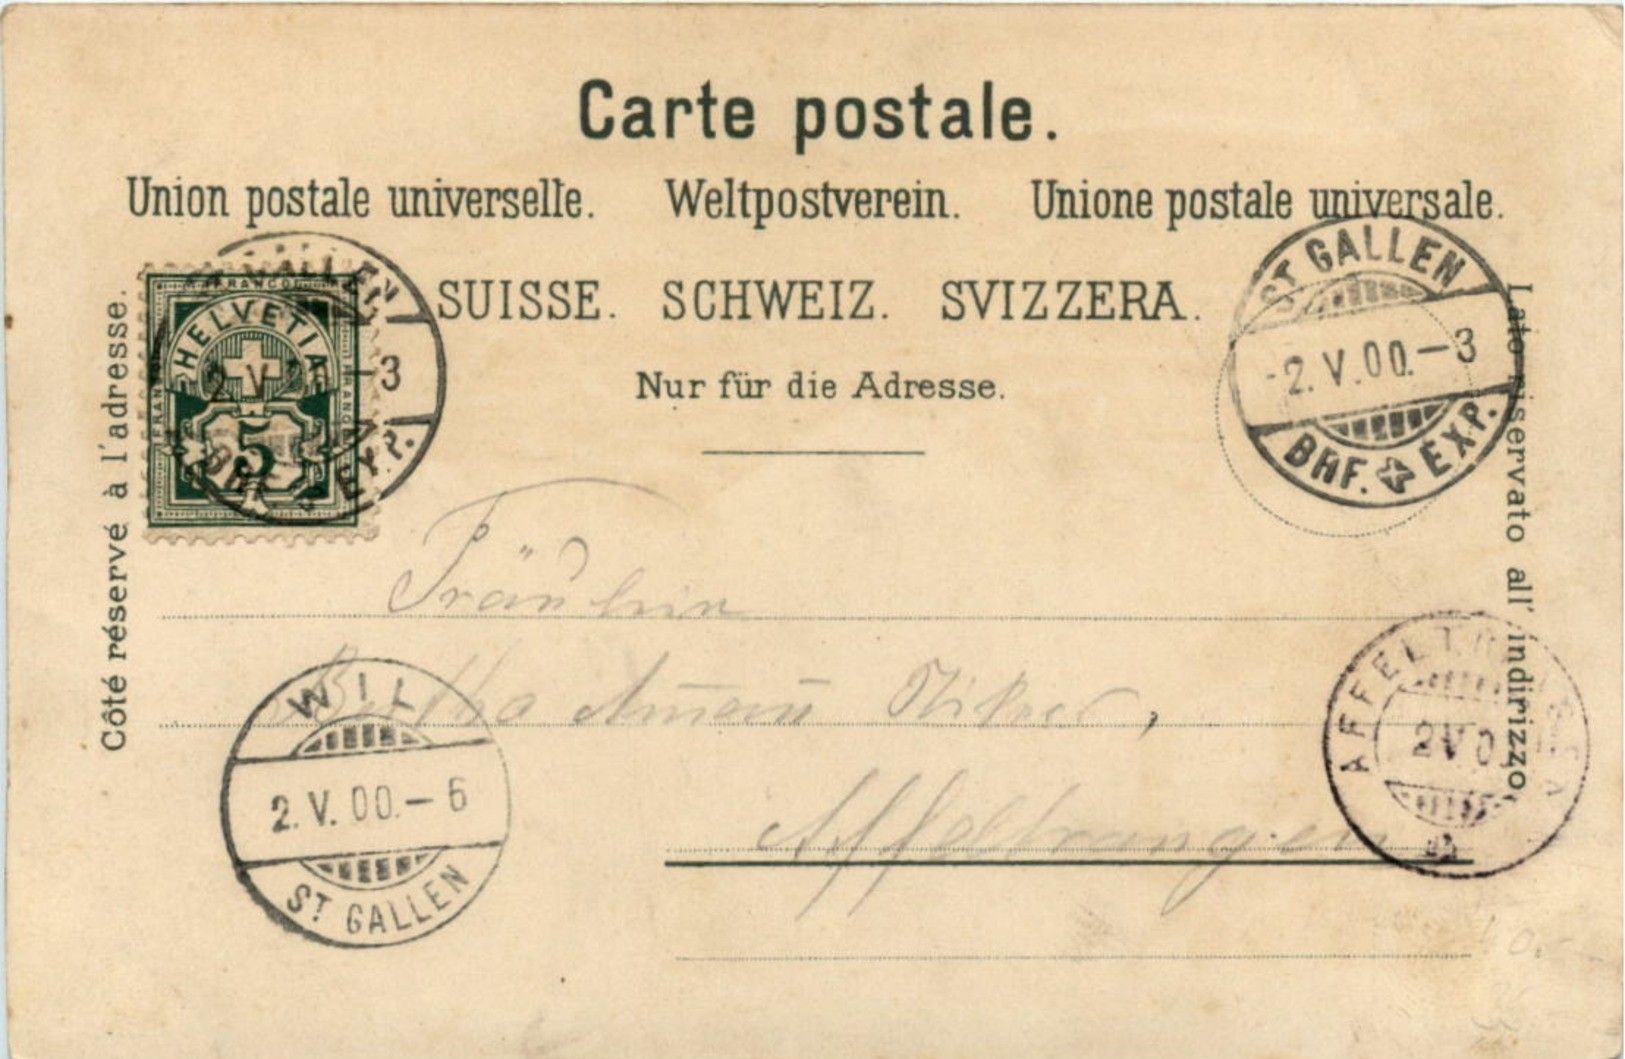 Carte postale.
Union postale universelle. Weltpostverein. Unione postale universale.
SUISSE. SCHWEIZ. SVIZZERA.
Nur für die Adresse.
Côté réservé à l'adresse.
Lato riservato all' indirizzo.
FRANCO
HELVETIA
5
ST GALLEN
2. V. –3
BRF. EXP.
ST GALLEN
-2. V. 00.–3
BRF. EXP.
Fräulein
Bertha
Affeltrangen
WIL
2. V. 00.–6
ST GALLEN
AFFELTRANGEN
2 V 0
40.-